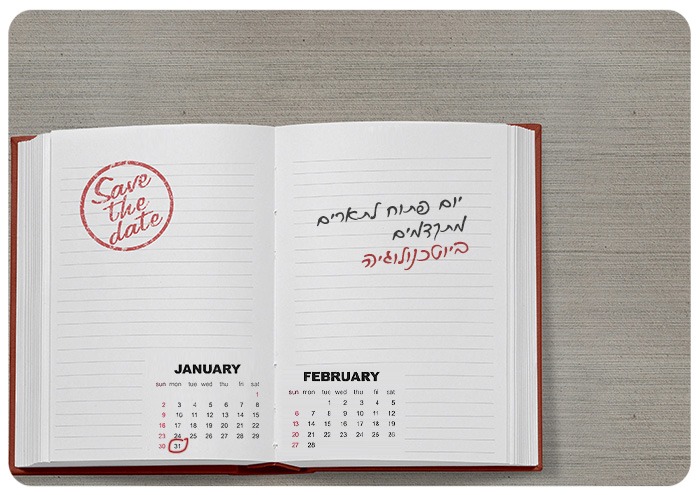 Save
the
date
יום פתוח לתארים
מתקדמים
ביוטכנולוגיה
JANUARY
sun mon tue wed thu fri sat
1
2 3 4 5 6 7 8
9 10 11 12 13 14 15
16 17 18 19 20 21 22
23 24 25 26 27 28 29
30 31
FEBRUARY
sun mon tue wed thu fri sat
1 2 3 4 5
6 7 8 9 10 11 12
13 14 15 16 17 18 19
20 21 22 23 24 25 26
27 28